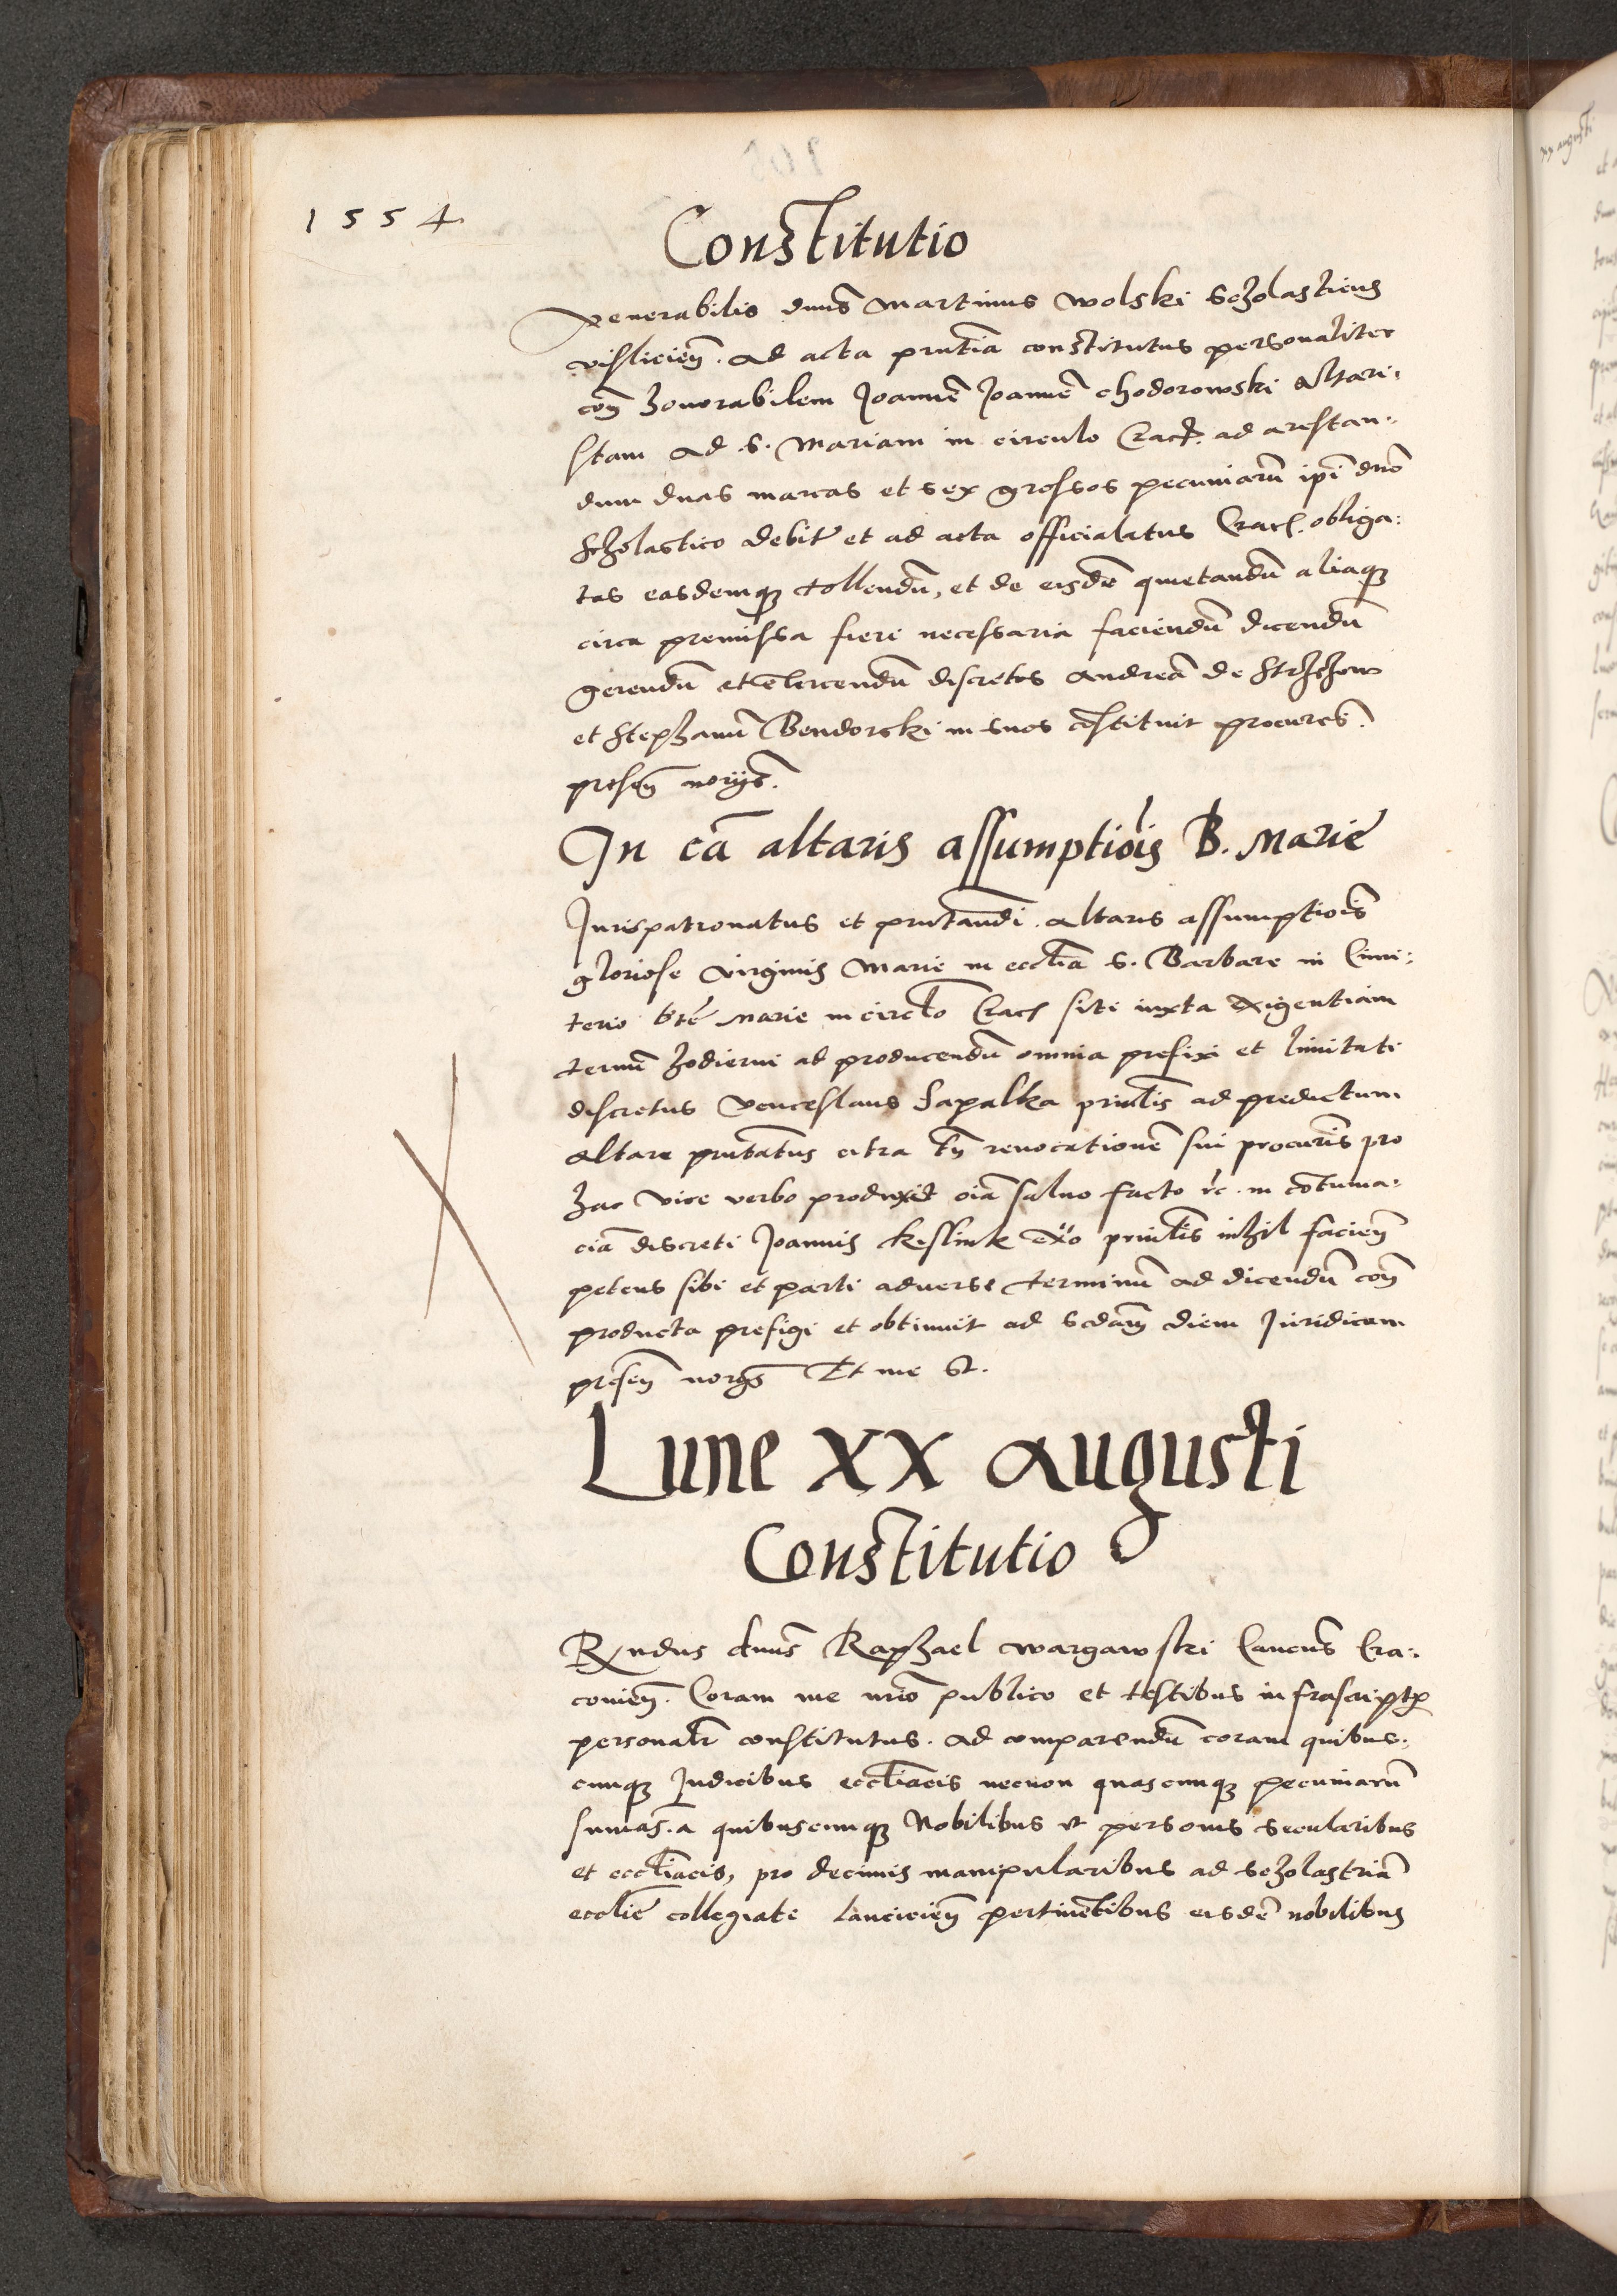 1554
Constitutio
Venerabilis dnus Martinus Wolski Scholasticus
vislicien. Ad acta pnntia constitutus personaliter
con honorabilem Joannē Joannē Chodorowski Altari-
stam Ad S. Mariam in circulo Crac. ad arestan-
dum duas marcas et sex grossos pecuniarū ipi dno
Scholastico debit et ad acta officialatus Crac. obliga-
tas easdemq tollendū, et de eisdē quietandū aliaq
circa premissa fieri necessaria faciendū dicendū
gerendū et exercendū discretos Andreā de Strzschow
et Stephanū Bendorski in suos cōstituit procures.
presen noriis.
In cā altaris assumptiois B. Marie
Jurispatronatus et pnntandi Altaris assumptiois
gloriose virginis Marie in ecclia S. Barbare in Cimi-
terio bte Marie in circlo Crac siti iuxta exigentiam
termī hodierni ad producendū omnia prefixi et limitati
discretus Venceslaus Sapalka principlis ad predictum
Altare pnntatus citra tn reuocationē sui procuris pro
hac vice verbo produxit oīa saluo facto rc. in cōtuma-
ciā discreti Joannis Keslink ex° principlis nihil facien
petens sibi et parti aduerse terminū ad dicendū con
producta prefigi et obtinuit ad scdam diem Juridicam
presen noris Et me St.
Lune XX Augusti
Constitutio
Rndus dnus Raphael Wargawski Cancus Cra-
couien. Coram me nrio publico et testibus infrascript
personalr constitutus. Ad comparendū coram quibus-
cunq Judicibus eccliacis necnon quascunq pecuniarū
sumas. a quibuscunq Nobilibus et personis secularibus
et eccliacis, pro decimis manipularibus ad scholastriā
ecclie collegiate Lancicien pertinētibus eisdē nobilibus